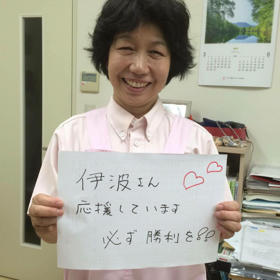 伊波さん
応援しています
必ず勝利を!!